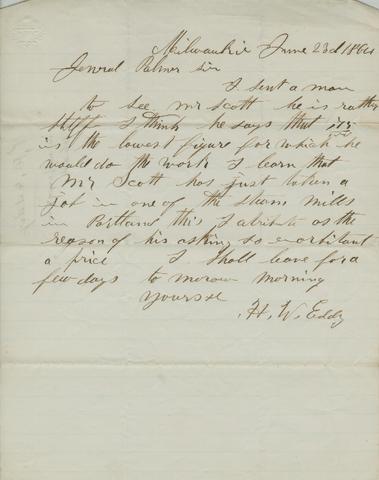 Milwaukie June 23d 1864
Jenral Palmer Sir
I sent a man
to see Mr Scott he is rather
stiff I think he says that
is the lowest figure for which he
would do the work I learn that
Mr Scott has just taken a
job in one of the steam mills
in Portland this I atribute as the
reason of his asking so exorbitant
a price I shall leave for a
few days to morow morning
Yours &c
H. W. Eddy